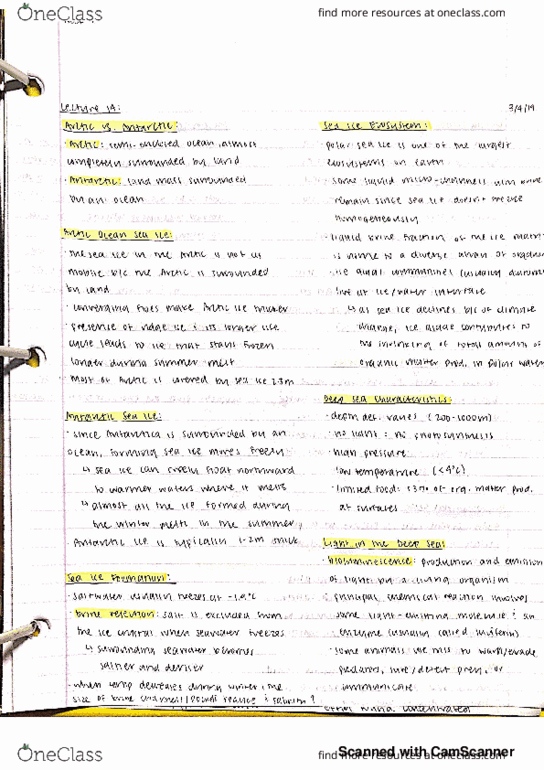 OneClass
find more resources at oneclass.com
Lecture 14:
3/4/19
Arctic vs. Antarctic:
· Arctic: semi-enclosed ocean, almost
completely surrounded by land
· Antarctic: land mass surrounded
by an ocean
Arctic Ocean Sea Ice:
· the sea ice in the Arctic is not as
mobile b/c the Arctic is surrounded
by land
· converging floes make Arctic ice thicker
· presence of ridge ice & its longer life
cycle leads to ice that stays frozen
longer during summer melt
· most of Arctic is covered by sea ice 2-3m
Antarctic Sea Ice:
· since Antarctica is surrounded by an
ocean, forming sea ice moves freely
↳ sea ice can freely float northward
to warmer waters where it melts
↳ almost all the ice formed during
the winter melts in the summer
· Antarctic ice is typically 1-2m thick
Sea Ice Formation:
· saltwater usually freezes at -1.9°C
· brine rejection: salt is excluded from
the ice crystal when seawater freezes
↳ surrounding seawater becomes
saltier and denser
· when temp decreases during winter, the
size of brine channels/pores reduce & salinity ↑
Sea Ice Ecosystem:
· polar sea ice is one of the largest
ecosystems on Earth
· some liquid micro-channels with brine
remain since sea ice doesn't freeze
homogeneously
· liquid brine fraction of the ice
is home to a diverse array of
· ice algal communities (usually
live at ice/water interface
↳ as sea ice declines b/c of climate
change, ice algae contributes to
the of total amount of
organic matter prod. in polar water
Deep Sea Characteristics:
· depth def. varies (200-1000m)
· no light : no photosynthesis
· high pressure
· low temperature (<4°C)
· limited food: <3% of org. matter prod.
at surfaces
Light in the Deep Sea:
· bioluminescence: production and emission
of light by a living organism
· principal chemical reaction involves
some light-emitting molecule & an
enzyme (usually called luciferin)
· some animals use this to warn/evade
predators, lure/detect prey, or
communicate
often
OneClass
find more resources at oneclass.com
Scanned with CamScanner